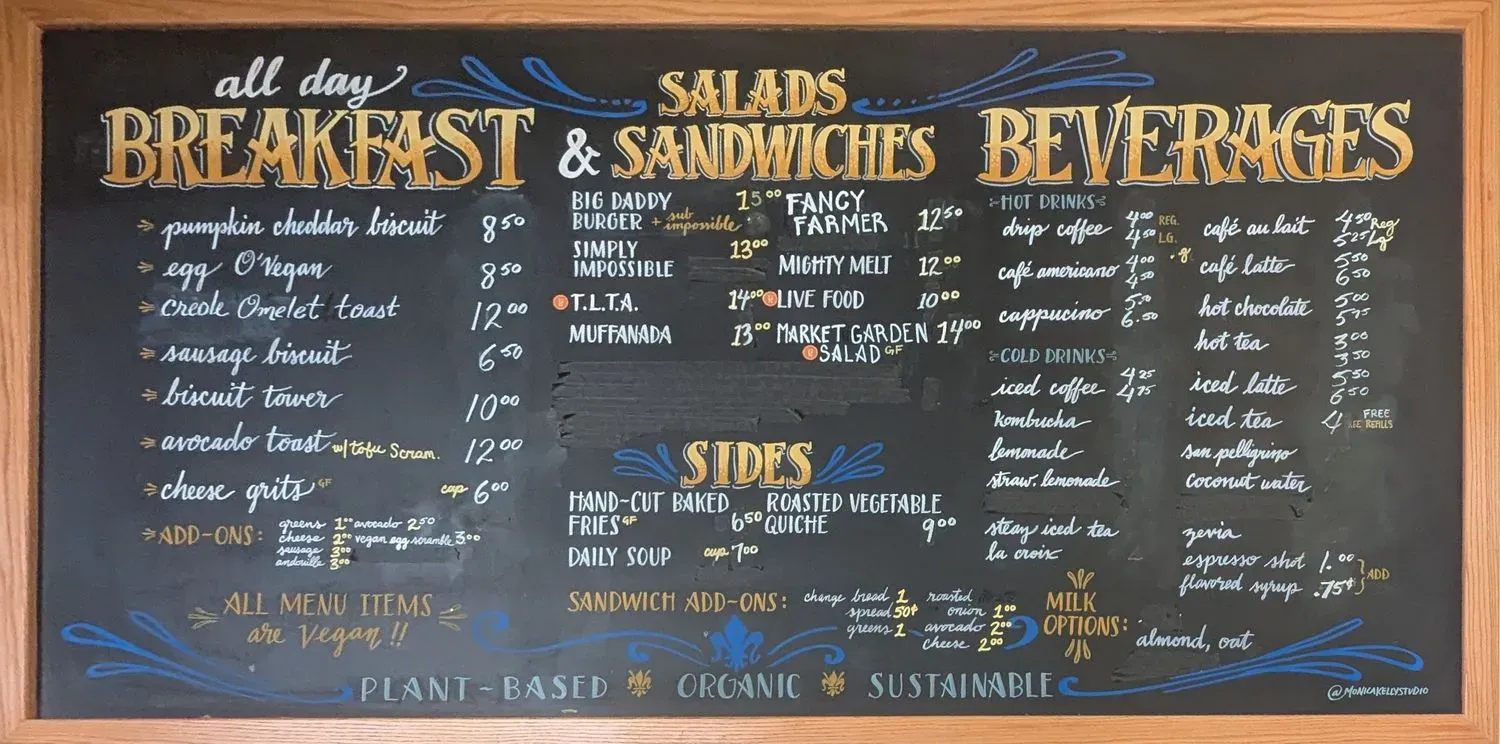 all day
BREAKFAST
pumpkin cheddar biscuit 8.50
egg O'Vegan 8.50
creole Omelet toast 12.00
sausage biscuit 6.50
biscuit tower 10.00
avocado toast w/ tofu Scram. 12.00
cheese grits GF cap 6.00
ADD-ONS:
greens 1.00 avocado 2.50
cheese 2.00 vegan egg scramble 3.00
sausage 3.00
andouille 3.00
ALL MENU ITEMS
are Vegan!!
SALADS
& SANDWICHES
BIG DADDY 15.00
BURGER + sub impossible
SIMPLY 13.00
IMPOSSIBLE
T.L.T.A. 14.00
MUFFANADA 13.00
FANCY
FARMER 12.50
MIGHTY MELT 12.00
LIVE FOOD 10.00
MARKET GARDEN 14.00
SALAD GF
SIDES
HAND-CUT BAKED
FRIES GF 6.50
DAILY SOUP cup 7.00
ROASTED VEGETABLE
QUICHE 9.00
SANDWICH ADD-ONS:
change bread 1
spread 50¢
greens 1
roasted
onion 1.00
avocado 2.00
cheese 2.00
BEVERAGES
HOT DRINKS
drip coffee 4.00 REG.
4.50 LG.
café americano 4.00
4.50
cappucino 5.50
6.50
COLD DRINKS
iced coffee 4.25
4.75
kombucha
lemonade
straw. lemonade
steay iced tea
la croix
café au lait 4.50 Reg
5.25 Lg
café latte 5.50
6.50
hot chocolate 5.00
5.75
hot tea 3.00
3.50
iced latte 5.50
6.50
iced tea 4 FREE
REFILLS
san pelligrino
coconut water
zevia
espresso shot 1.00
flavored syrup .75¢
ADD
MILK
OPTIONS: almond, oat
PLANT-BASED ORGANIC SUSTAINABLE
@MONICAKELLYSTUDIO